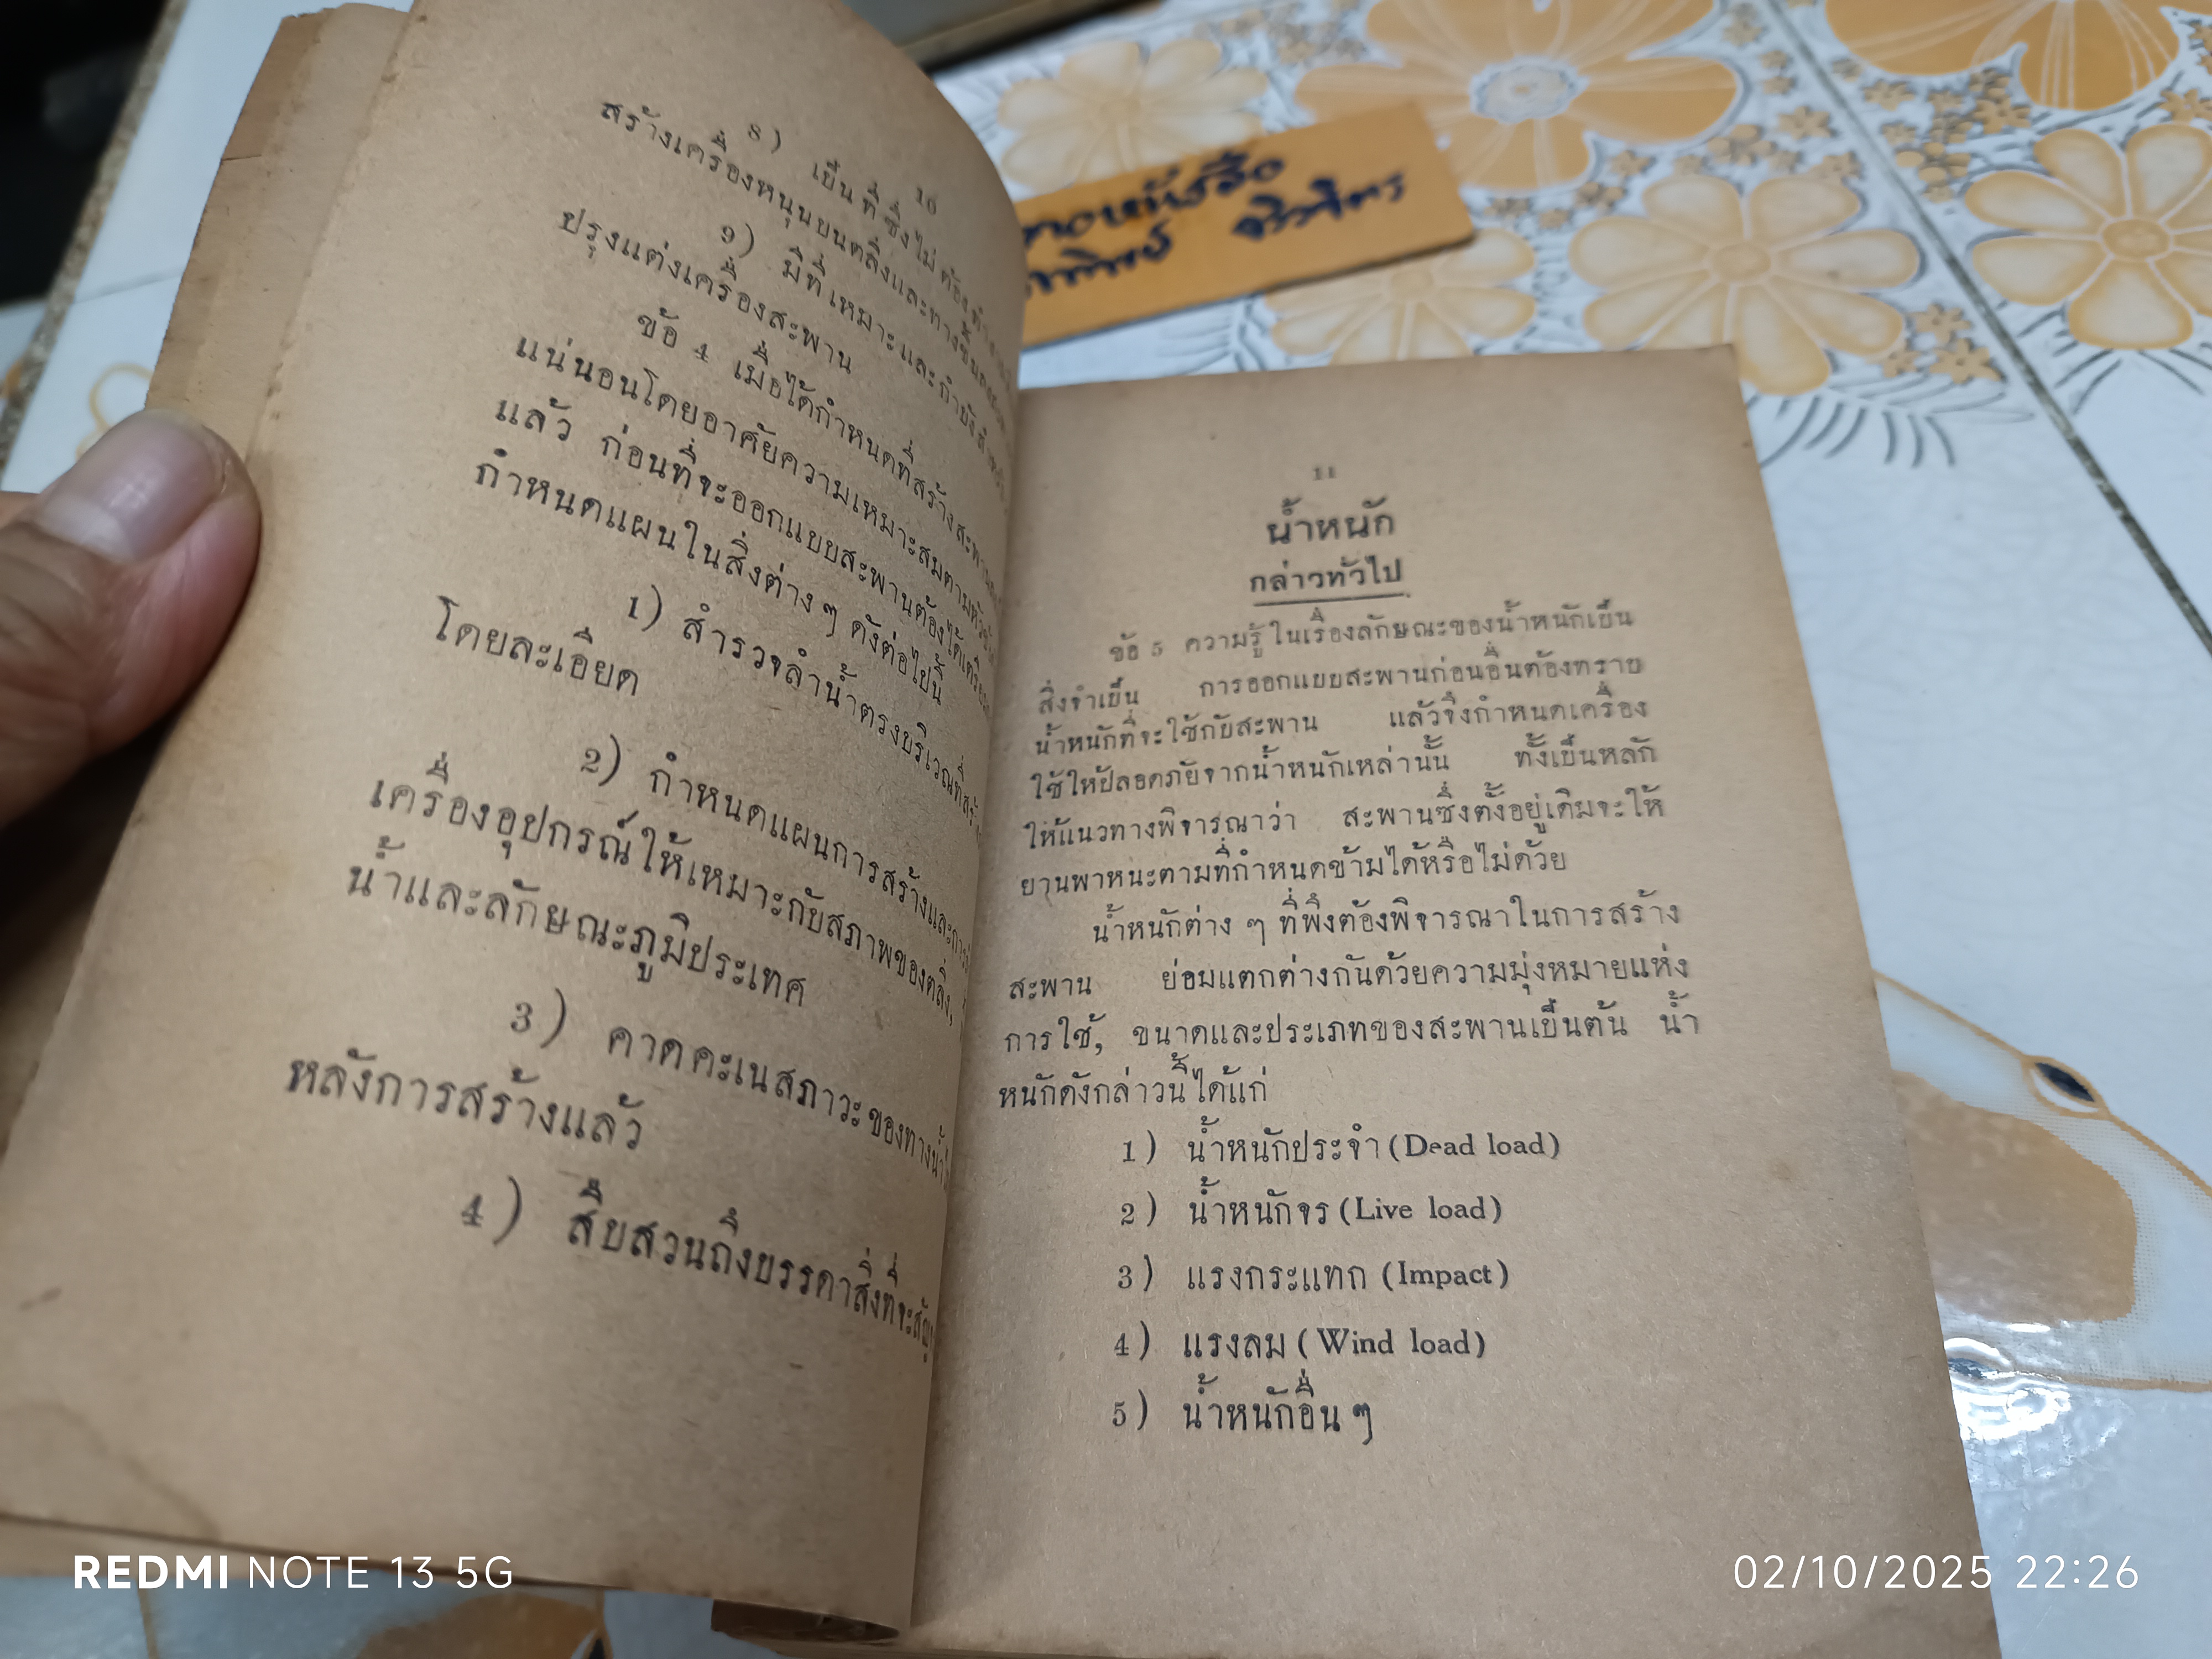 10
8) เป็นที่ซึ่งไม่ต้องทำ
สร้างเครื่องหนุนบนตลิ่งและทางขึ้นลง
9) มีที่เหมาะและกำบัง
ปรุงแต่งเครื่องสะพาน
ข้อ 4 เมื่อได้กำหนดที่สร้างสะพาน
แน่นอนโดยอาศัยความเหมาะสมตามหัวข้อ
แล้ว ก่อนที่จะออกแบบสะพานต้องได้เตรียม
กำหนดแผนในสิ่งต่าง ๆ ดังต่อไปนี้
1) สำรวจลำน้ำตรงบริเวณที่สร้าง
โดยละเอียด
2) กำหนดแผนการสร้างและการ
เครื่องอุปกรณ์ให้เหมาะกับสภาพของตลิ่ง,
น้ำและลักษณะภูมิประเทศ
3) คาดคะเนสภาวะของทางน้ำ
หลังการสร้างแล้ว
4) สืบสวนถึงบรรดาสิ่งที่จะ
11
น้ำหนัก
กล่าวทั่วไป
ข้อ 5 ความรู้ในเรื่องลักษณะของน้ำหนักเป็น
สิ่งจำเป็น การออกแบบสะพานก่อนอื่นต้องทราบ
น้ำหนักที่จะใช้กับสะพาน แล้วจึงกำหนดเครื่อง
ใช้ให้ปลอดภัยจากน้ำหนักเหล่านั้น ทั้งเป็นหลัก
ให้แนวทางพิจารณาว่า สะพานซึ่งตั้งอยู่เดิมจะให้
ยานพาหนะตามที่กำหนดข้ามได้หรือไม่ด้วย
น้ำหนักต่าง ๆ ที่พึงต้องพิจารณาในการสร้าง
สะพาน ย่อมแตกต่างกันด้วยความมุ่งหมายแห่ง
การใช้, ขนาดและประเภทของสะพานเป็นต้น น้ำ
หนักดังกล่าวนี้ได้แก่
1) น้ำหนักประจำ (Dead load)
2) น้ำหนักจร (Live load)
3) แรงกระแทก (Impact)
4) แรงลม (Wind load)
5) น้ำหนักอื่น ๆ
REDMI NOTE 13 5G
02/10/2025 22:26